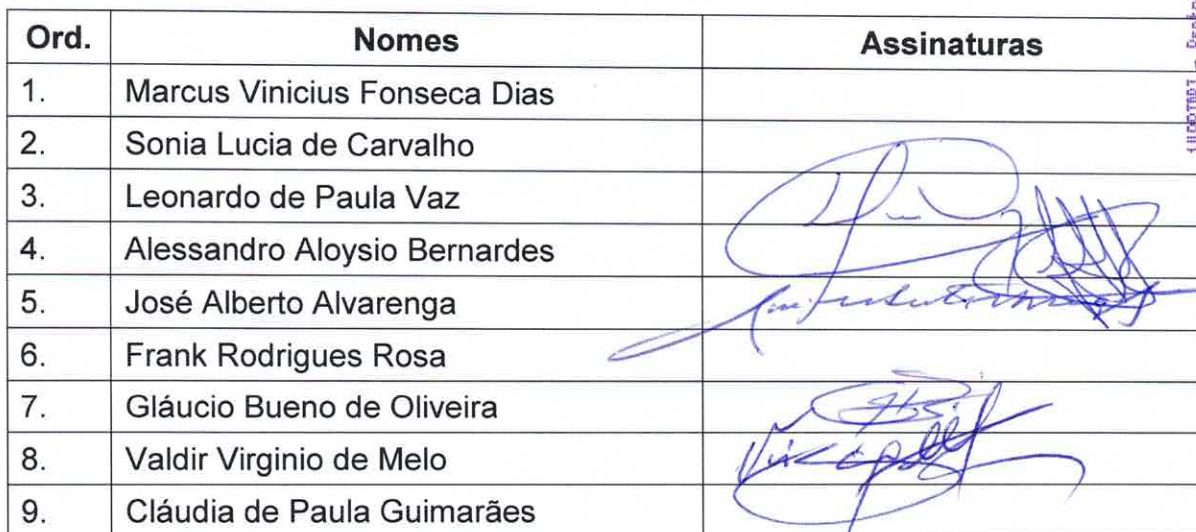 Ord. Nomes Assinaturas
1. Marcus Vinicius Fonseca Dias
2. Sonia Lucia de Carvalho
3. Leonardo de Paula Vaz
4. Alessandro Aloysio Bernardes
5. José Alberto Alvarenga
6. Frank Rodrigues Rosa
7. Gláucio Bueno de Oliveira
8. Valdir Virginio de Melo
9. Cláudia de Paula Guimarães